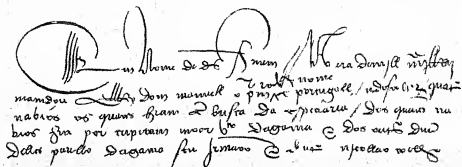 Em Nome de ds Amem Na era de mill iiij LRbij
mandou ellRey dom manuell o pro deste nome em portugall / a descobrir quatro
nabios os quaes hiam em busca da espeçiaria / dos quaes na
bios hia por capitam moor Vco dagama e dos outros duũ
deles paullo dagama seu Jrmaoo e doutro njcollao coelho